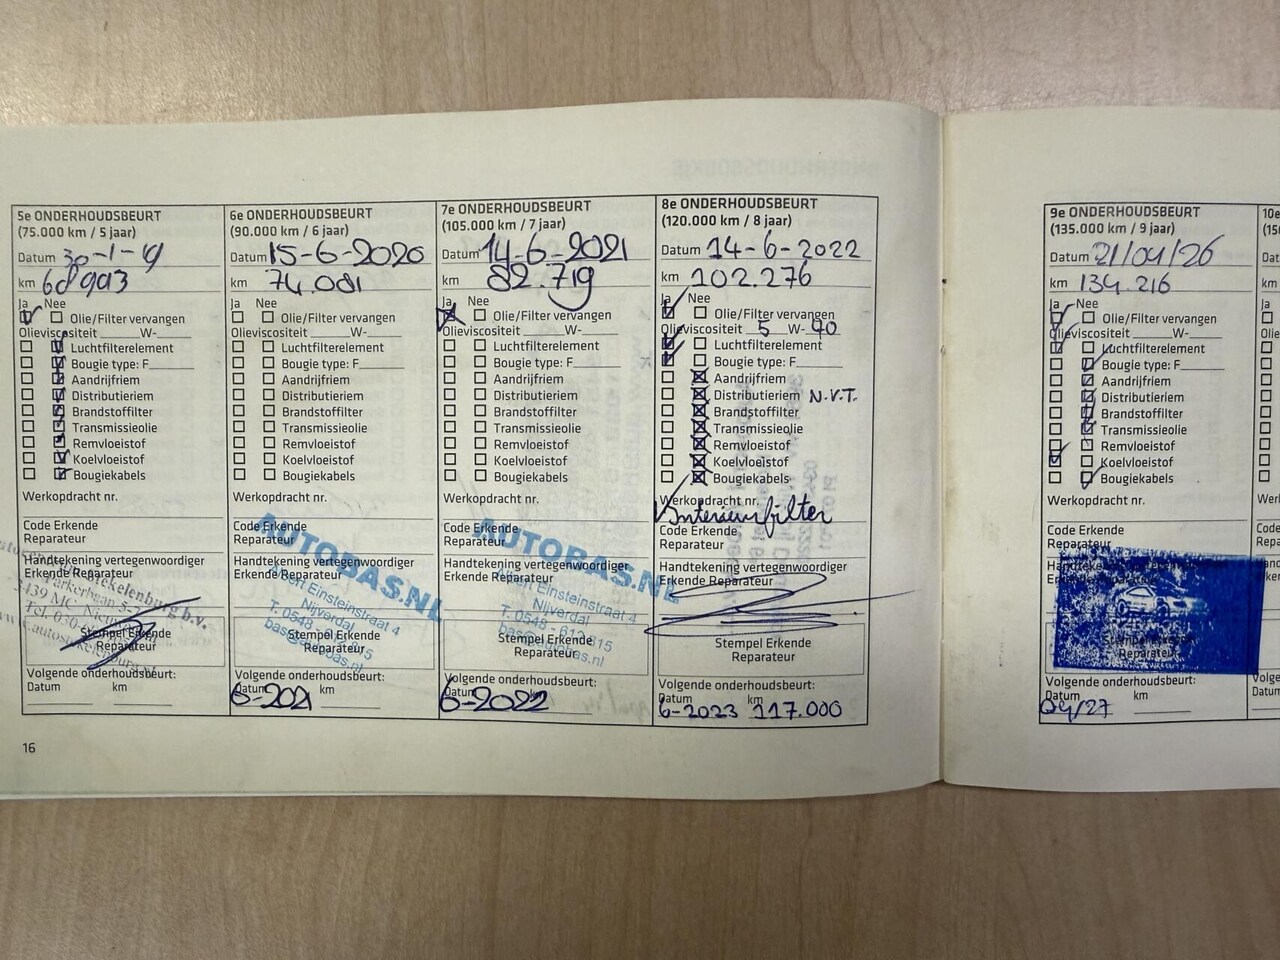 5e ONDERHOUDSBEURT
(75.000 km / 5 jaar)
Datum 30-1-19
km 68993
Ja Nee
Olie/Filter vervangen
Olieviscositeit W-
Luchtfilterelement
Bougie type: F
Aandrijfriem
Distributieriem
Brandstoffilter
Transmissieolie
Remvloeistof
Koelvloeistof
Bougiekabels
Werkopdracht nr.
Code Erkende
Reparateur
Handtekening vertegenwoordiger
Erkende Reparateur
Stempel Erkende
Reparateur
Volgende onderhoudsbeurt:
Datum km
16
6e ONDERHOUDSBEURT
(90.000 km / 6 jaar)
Datum 15-6-2020
km 74.081
Ja Nee
Olie/Filter vervangen
Olieviscositeit W-
Luchtfilterelement
Bougie type: F
Aandrijfriem
Distributieriem
Brandstoffilter
Transmissieolie
Remvloeistof
Koelvloeistof
Bougiekabels
Werkopdracht nr.
Code Erkende
Reparateur
Handtekening vertegenwoordiger
Erkende Reparateur
AUTOBAS.NL
Albert Einsteinstraat 4
Nijverdal
T. 0548 - 612615
bas@autobas.nl
Stempel Erkende
Reparateur
Volgende onderhoudsbeurt:
Datum km
6-2021
7e ONDERHOUDSBEURT
(105.000 km / 7 jaar)
Datum 14-6-2021
km 82.719
Ja Nee
Olie/Filter vervangen
Olieviscositeit W-
Luchtfilterelement
Bougie type: F
Aandrijfriem
Distributieriem
Brandstoffilter
Transmissieolie
Remvloeistof
Koelvloeistof
Bougiekabels
Werkopdracht nr.
Code Erkende
Reparateur
Handtekening vertegenwoordiger
Erkende Reparateur
AUTOBAS.NL
Albert Einsteinstraat 4
Nijverdal
T. 0548 - 612615
bas@autobas.nl
Stempel Erkende
Reparateur
Volgende onderhoudsbeurt:
Datum km
6-2022
8e ONDERHOUDSBEURT
(120.000 km / 8 jaar)
Datum 14-6-2022
km 102.276
Ja Nee
Olie/Filter vervangen
Olieviscositeit 5 W-40
Luchtfilterelement
Bougie type: F
Aandrijfriem
Distributieriem N.V.T.
Brandstoffilter
Transmissieolie
Remvloeistof
Koelvloeistof
Bougiekabels
Werkopdracht nr.
Interieurfilter
Code Erkende
Reparateur
Handtekening vertegenwoordiger
Erkende Reparateur
Stempel Erkende
Reparateur
Volgende onderhoudsbeurt:
Datum km
6-2023 117.000
9e ONDERHOUDSBEURT
(135.000 km / 9 jaar)
Datum 21/04/26
km 134.216
Ja Nee
Olie/Filter vervangen
Olieviscositeit W-
Luchtfilterelement
Bougie type: F
Aandrijfriem
Distributieriem
Brandstoffilter
Transmissieolie
Remvloeistof
Koelvloeistof
Bougiekabels
Werkopdracht nr.
Code Erkende
Reparateur
Stempel Erkende
Reparateur
Volgende onderhoudsbeurt:
Datum km
04/27
10e